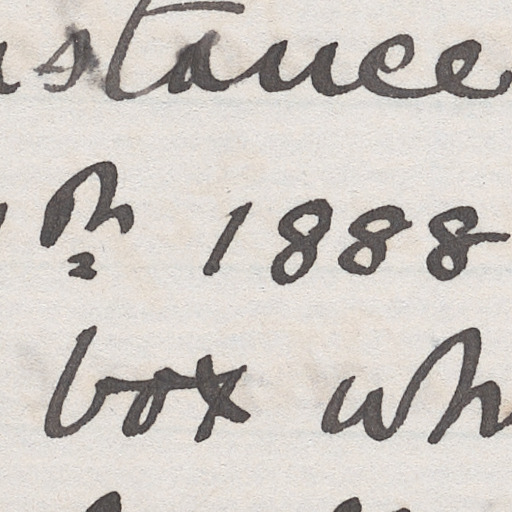 nstance
th 1888
box wh